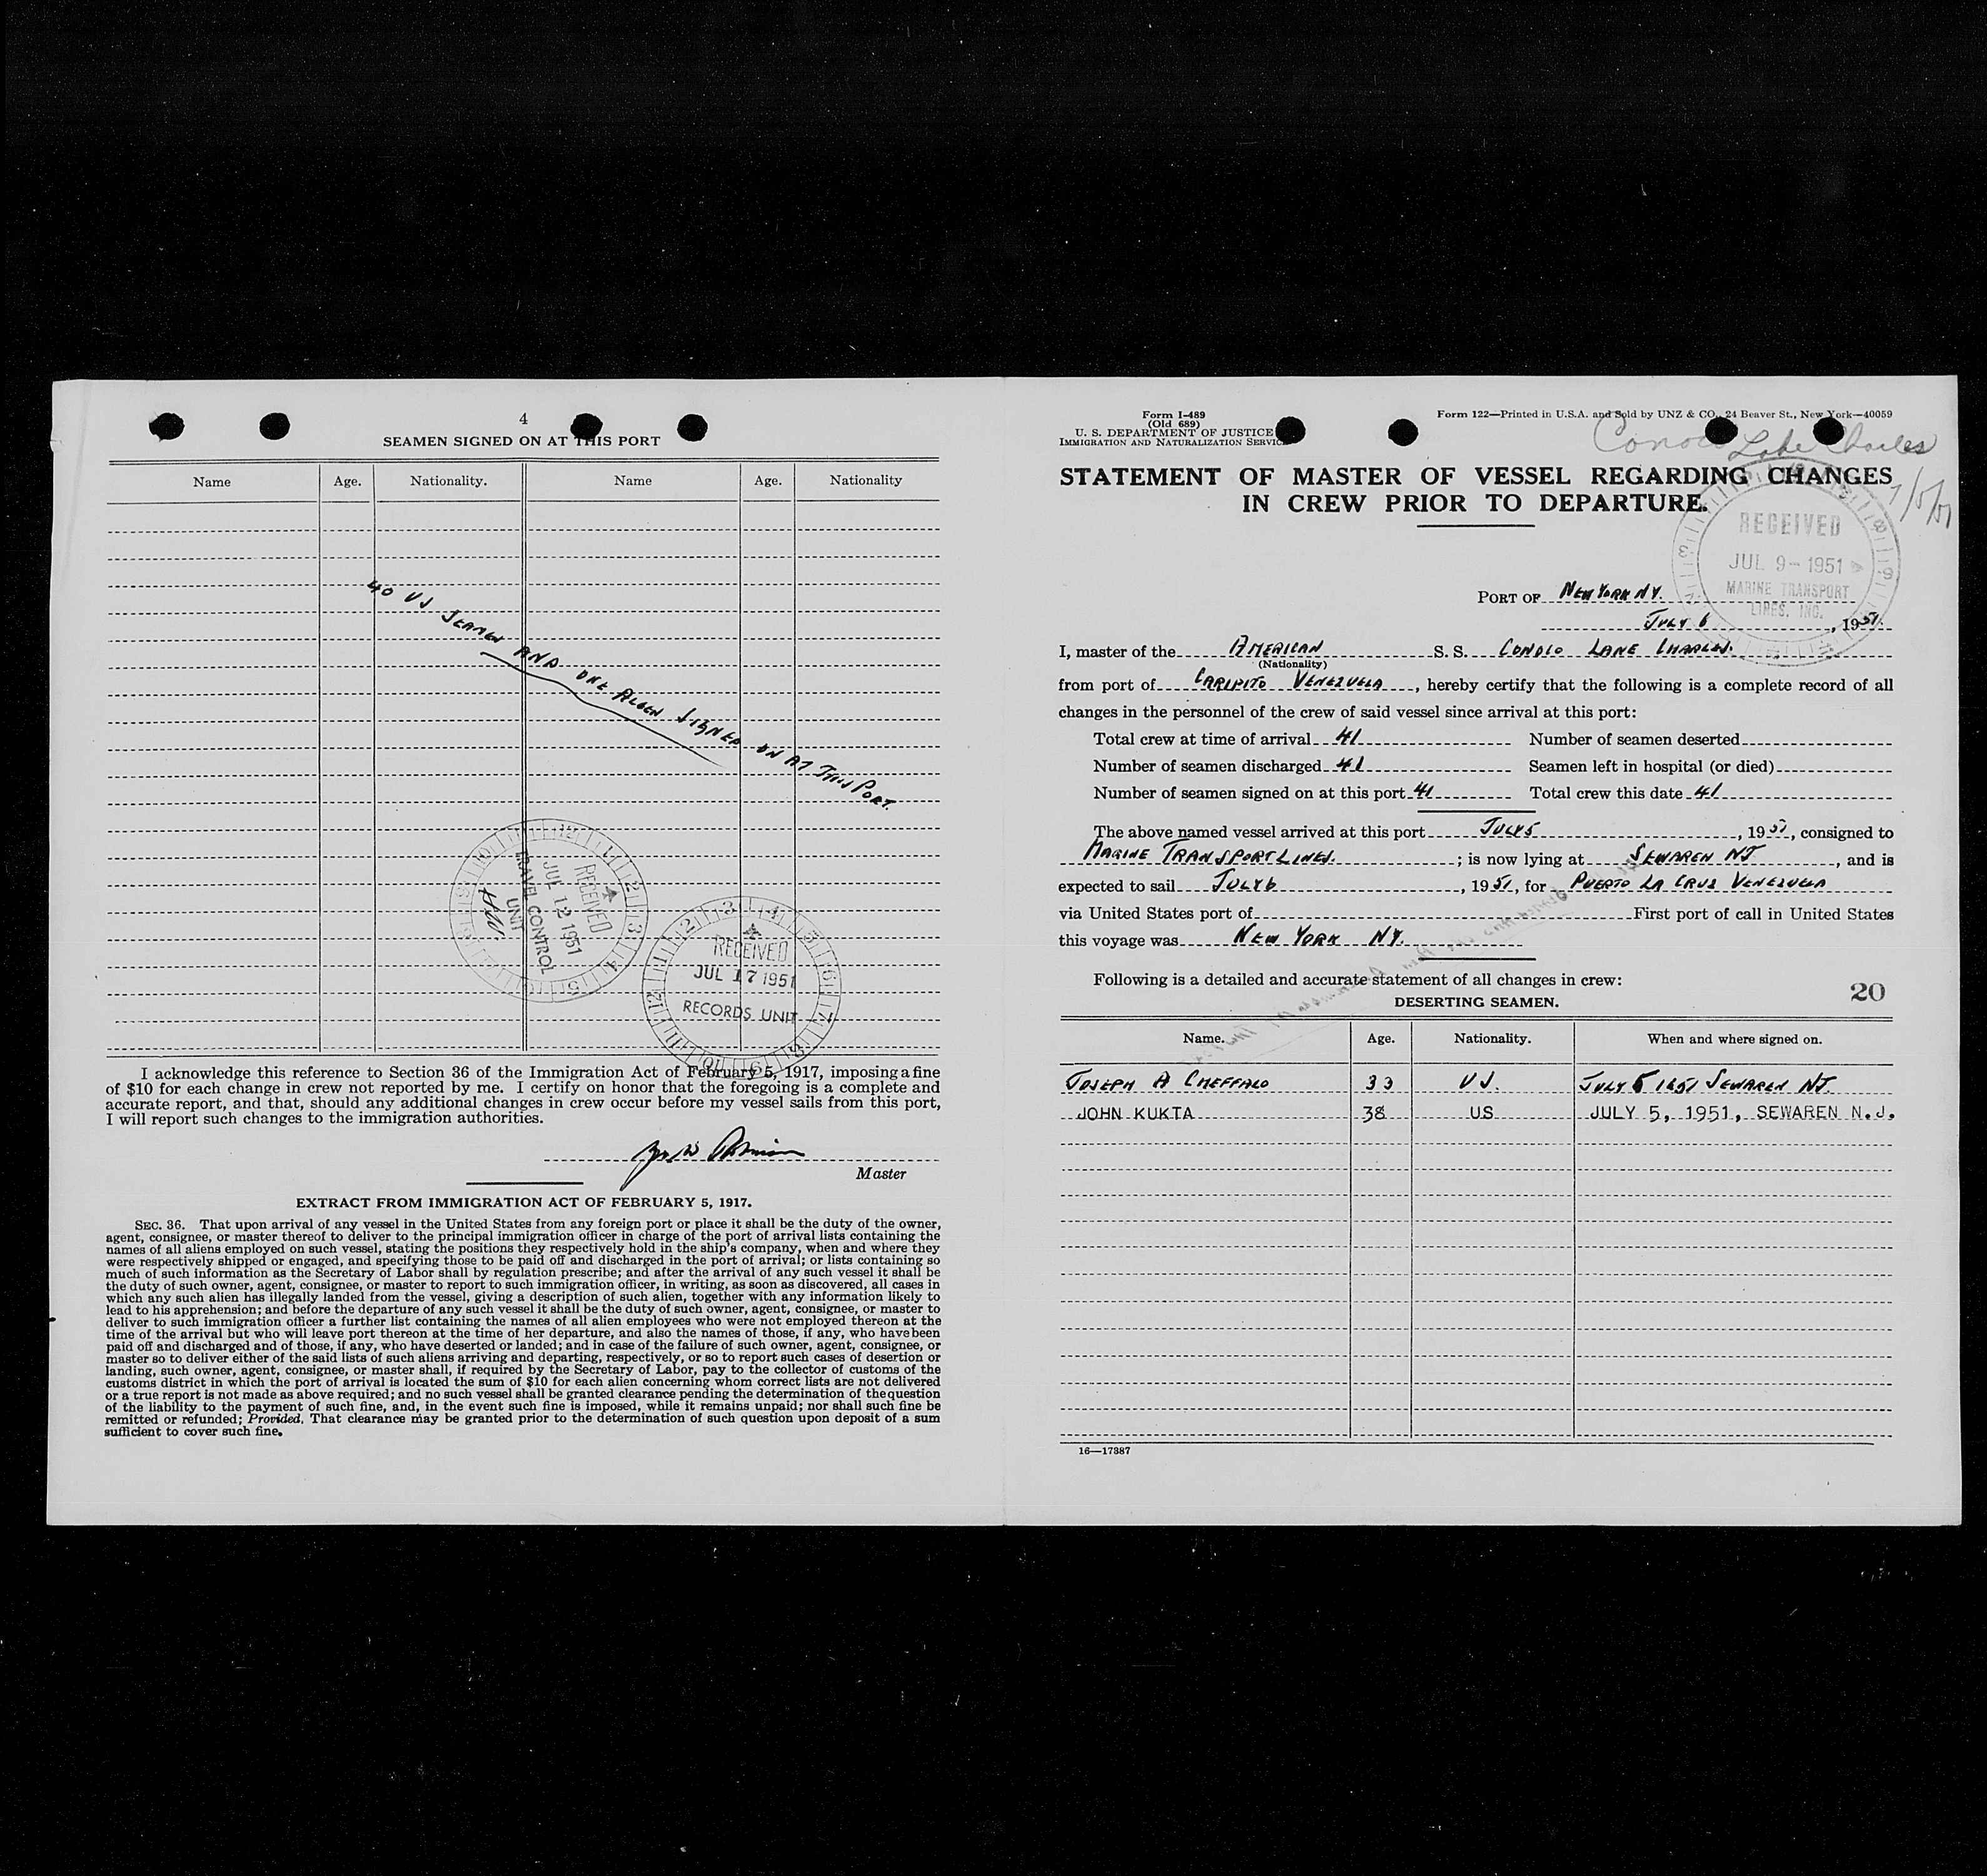 4
SEAMEN SIGNED ON AT THIS PORT
Name Age. Nationality. Name Age. Nationality
40 US SEAMEN AND ONE ALIEN SIGNED ON AT THIS PORT.
RECEIVED
JUL 12 1951
TRAVEL CONTROL
UNIT
RECEIVED
JUL 17 1951
RECORDS UNIT
I acknowledge this reference to Section 36 of the Immigration Act of February 5, 1917, imposing a fine
of $10 for each change in crew not reported by me. I certify on honor that the foregoing is a complete and
accurate report, and that, should any additional changes in crew occur before my vessel sails from this port,
I will report such changes to the immigration authorities.
Master
EXTRACT FROM IMMIGRATION ACT OF FEBRUARY 5, 1917.
SEC. 36. That upon arrival of any vessel in the United States from any foreign port or place it shall be the duty of the owner,
agent, consignee, or master thereof to deliver to the principal immigration officer in charge of the port of arrival lists containing the
names of all aliens employed on such vessel, stating the positions they respectively hold in the ship's company, when and where they
were respectively shipped or engaged, and specifying those to be paid off and discharged in the port of arrival; or lists containing so
much of such information as the Secretary of Labor shall by regulation prescribe; and after the arrival of any such vessel it shall be
the duty of such owner, agent, consignee, or master to report to such immigration officer, in writing, as soon as discovered, all cases in
which any such alien has illegally landed from the vessel, giving a description of such alien, together with any information likely to
lead to his apprehension; and before the departure of any such vessel it shall be the duty of such owner, agent, consignee, or master to
deliver to such immigration officer a further list containing the names of all alien employees who were not employed thereon at the
time of the arrival but who will leave port thereon at the time of her departure, and also the names of those, if any, who have been
paid off and discharged and of those, if any, who have deserted or landed; and in case of the failure of such owner, agent, consignee, or
master so to deliver either of the said lists of such aliens arriving and departing, respectively, or so to report such cases of desertion or
landing, such owner, agent, consignee, or master shall, if required by the Secretary of Labor, pay to the collector of customs of the
customs district in which the port of arrival is located the sum of $10 for each alien concerning whom correct lists are not delivered
or a true report is not made as above required; and no such vessel shall be granted clearance pending the determination of the question
of the liability to the payment of such fine, and, in the event such fine is imposed, while it remains unpaid; nor shall such fine be
remitted or refunded; Provided, That clearance may be granted prior to the determination of such question upon deposit of a sum
sufficient to cover such fine.
Form I-489
(Old 689)
U. S. DEPARTMENT OF JUSTICE
IMMIGRATION AND NATURALIZATION SERVICE
Form 122—Printed in U.S.A. and Sold by UNZ & CO., 24 Beaver St., New York—40059
Conoco Lake Charles
7/5/51
STATEMENT OF MASTER OF VESSEL REGARDING CHANGES
IN CREW PRIOR TO DEPARTURE.
RECEIVED
JUL 9- 1951
MARINE TRANSPORT
LINES, INC.
PORT OF NEW YORK NY.
JULY 6, 1951.
I, master of the AMERICAN S. S. CONOCO LAKE CHARLES.
(Nationality)
from port of CARIPITO VENEZUELA, hereby certify that the following is a complete record of all
changes in the personnel of the crew of said vessel since arrival at this port:
Total crew at time of arrival 41 Number of seamen deserted
Number of seamen discharged 41 Seamen left in hospital (or died)
Number of seamen signed on at this port 41 Total crew this date 41
The above named vessel arrived at this port JULY 5, 1951, consigned to
MARINE TRANSPORT LINES. ; is now lying at SEWAREN NJ, and is
expected to sail JULY 6, 1951, for PUERTO LA CRUZ VENEZUELA
via United States port of First port of call in United States
this voyage was NEW YORK NY.
Following is a detailed and accurate statement of all changes in crew:
20
DESERTING SEAMEN.
Name. Age. Nationality. When and where signed on.
JOSEPH A CHEFFALO 33 US. JULY 5 1951 SEWAREN NJ.
JOHN KUKTA 38 US JULY 5, 1951, SEWAREN N.J.
16—17387